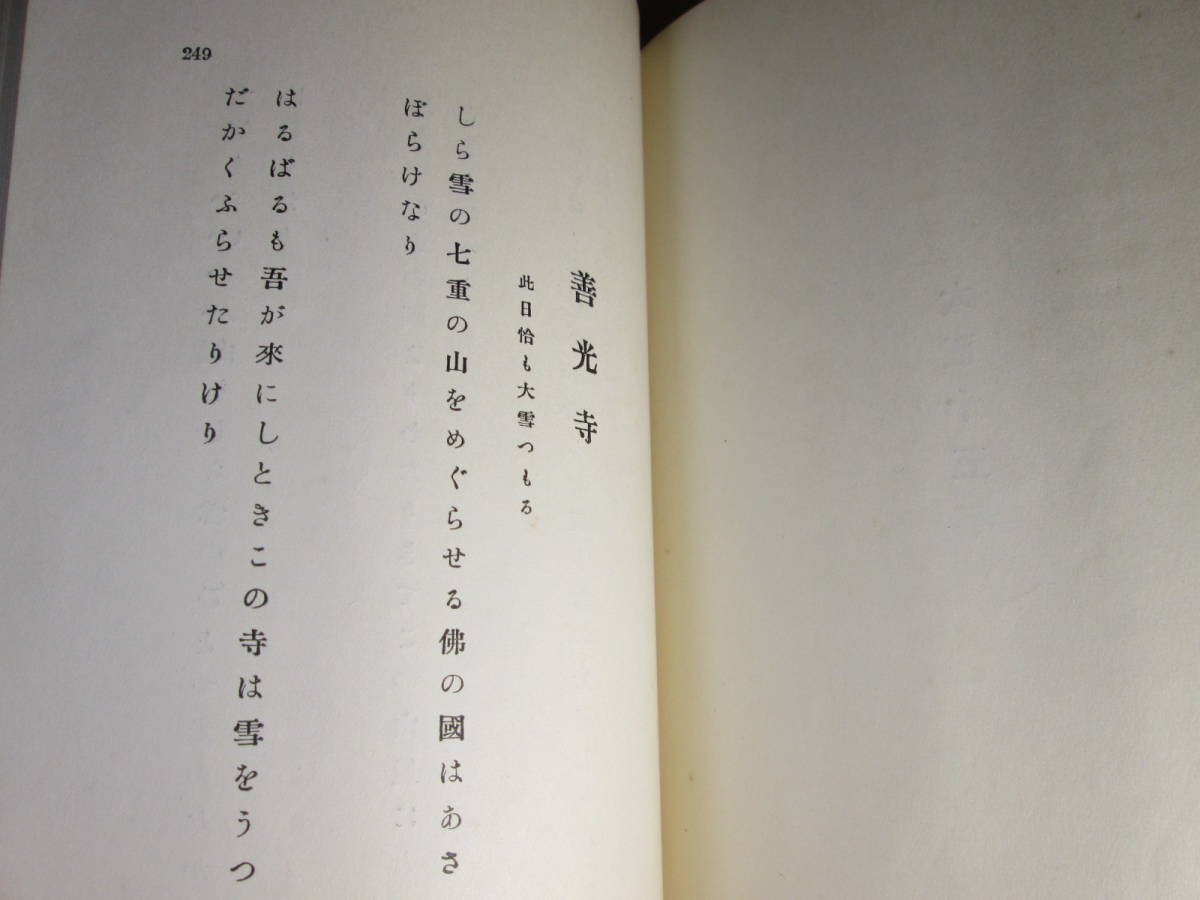 善光寺
此日恰も大雪つもる
しら雪の七重の山をめぐらせる佛の國はあさ
ぼらけなり
はるばるも吾が來にしときこの寺は雪をうつ
だかくふらせたりけり
249